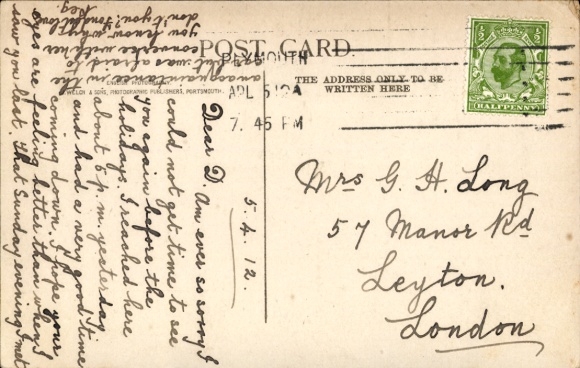 POST CARD
THE ADDRESS ONLY TO BE
WRITTEN HERE
PLYMOUTH
APL 5 12
7. 45 PM
HALFPENNY
WELCH & SONS, PHOTOGRAPHIC PUBLISHERS, PORTSMOUTH.
5. 4. 12.
Dear D. Am ever so sorry I
could not get time to see
you again before the
holidays. I reached here
about 6 p.m. yesterday
and had a very good time
coming down. I hope your
eyes are feeling better than when I
saw you last. That Sunday evening I met
an acquaintance in the
but was afraid to
converse with her
you know why?
don't you? Fondest love
Reg
Mrs G. H. Long
57 Manor Rd
Leyton.
London